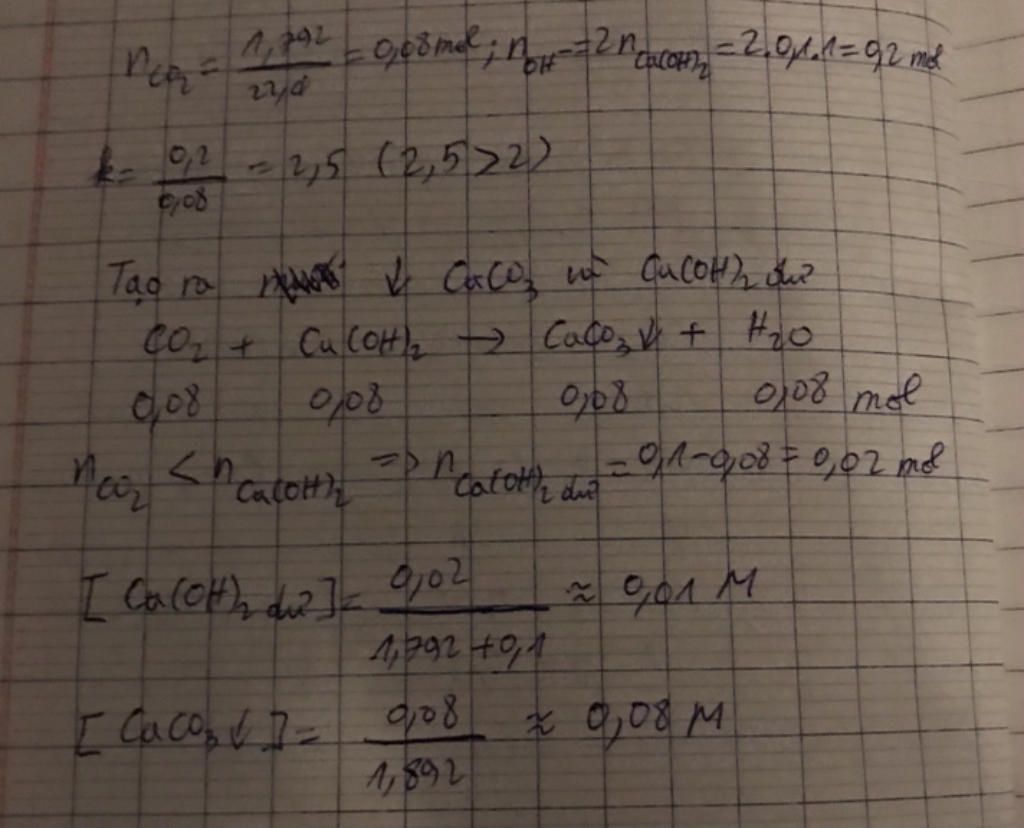 n_CO₂ = 1,792/22,4 = 0,08 mol; n_OH⁻ = 2n_Ca(OH)₂ = 2.0,1.1 = 0,2 mol
k = 0,2/0,08 = 2,5 (2,5 > 2)
Tạo ra ↓ CaCO₃ và Ca(OH)₂ dư
CO₂ + Ca(OH)₂ → CaCO₃↓ + H₂O
0,08 0,08 0,08 0,08 mol
n_CO₂ < n_Ca(OH)₂ => n_Ca(OH)₂ dư = 0,1 - 0,08 = 0,02 mol
[Ca(OH)₂ dư] = 0,02/1,792 + 0,1 ≈ 0,01 M
[CaCO₃↓] = 0,08/1,892 ≈ 0,08 M